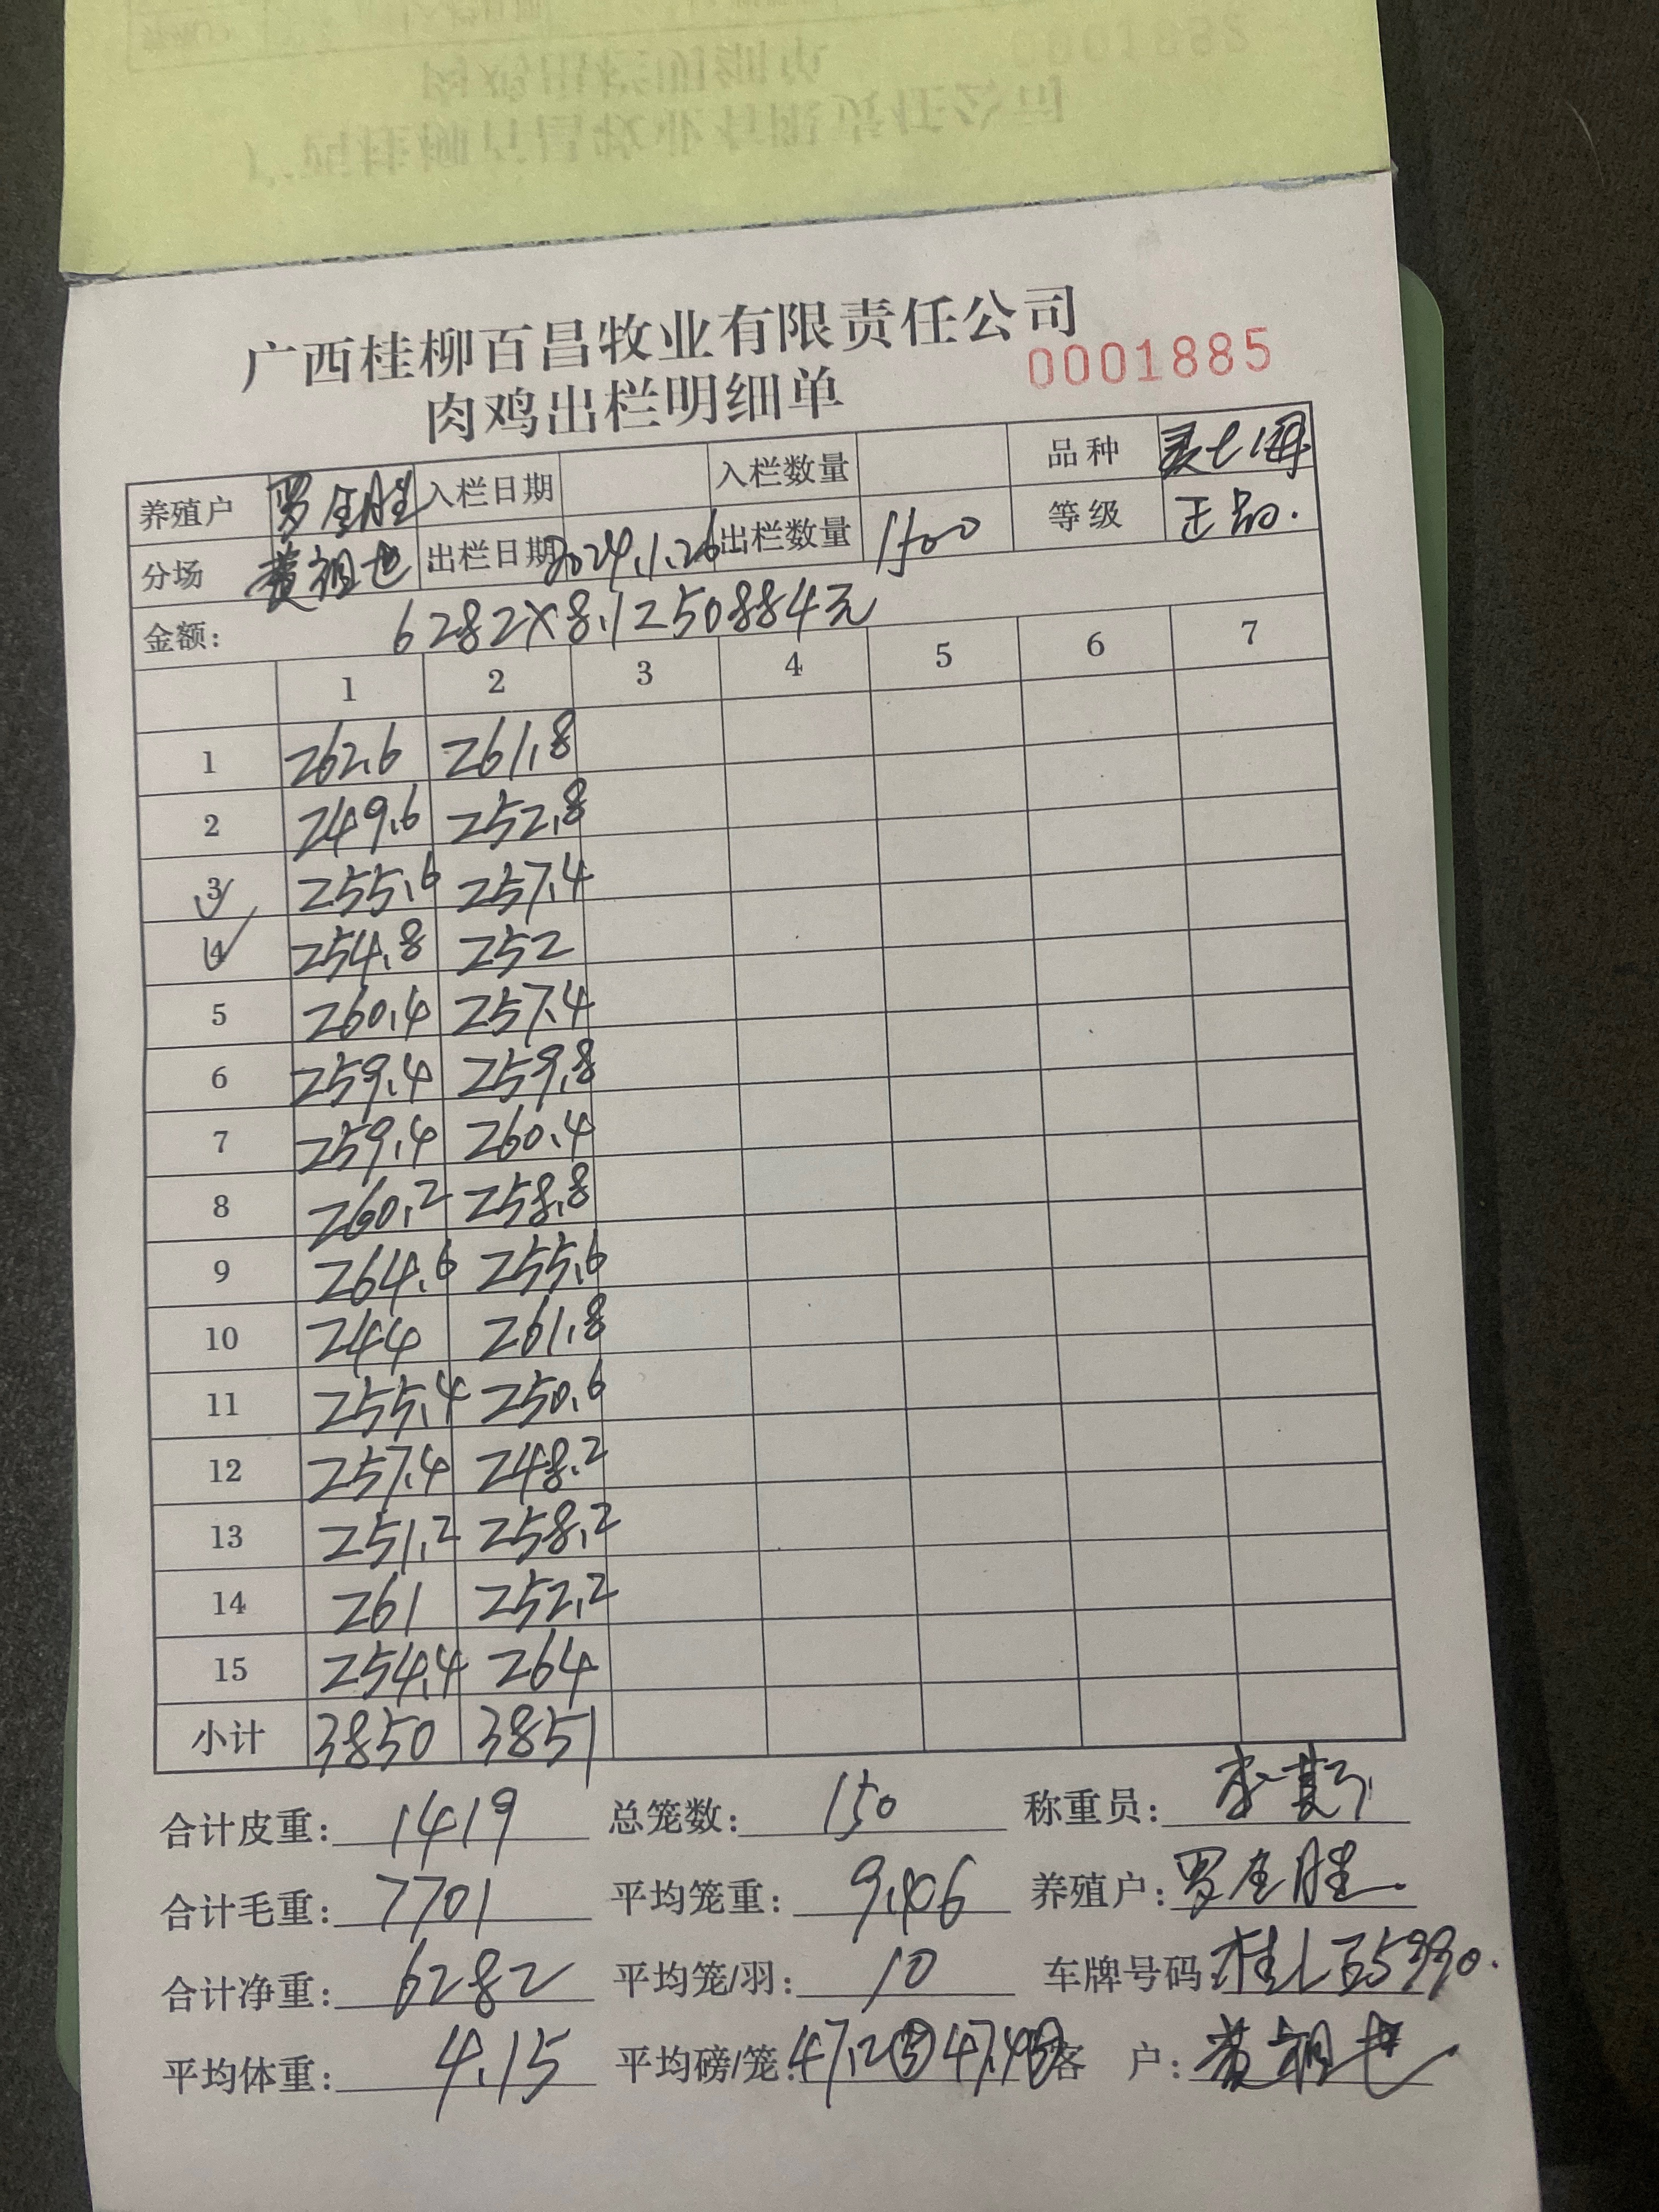 广西桂柳百昌牧业有限责任公司
0001885
肉鸡出栏明细单
养殖户 罗全胜 入栏日期 入栏数量 品种
分场 黄祖也 出栏日期 2024.1.26 出栏数量 1500 等级 正品.
金额: 6282×8.1=50884元
1 2 3 4 5 6 7
1 262.6 261.8
2 249.6 252.8
3 255.6 257.4
4 254.8 252
5 260.4 257.4
6 259.4 259.8
7 259.4 260.4
8 260.2 258.8
9 264.6 255.6
10 244 261.8
11 255.4 250.6
12 257.4 248.2
13 251.2 258.2
14 261 252.2
15 254.4 264
小计 3850 3851
合计皮重: 1419 总笼数: 150 称重员: 李
合计毛重: 7701 平均笼重: 9.46 养殖户: 罗全胜.
合计净重: 6282 平均笼/羽: 10 车牌号码: 桂
平均体重: 4.15 平均磅/笼: 47.2⑤ 客 户: 黄祖也